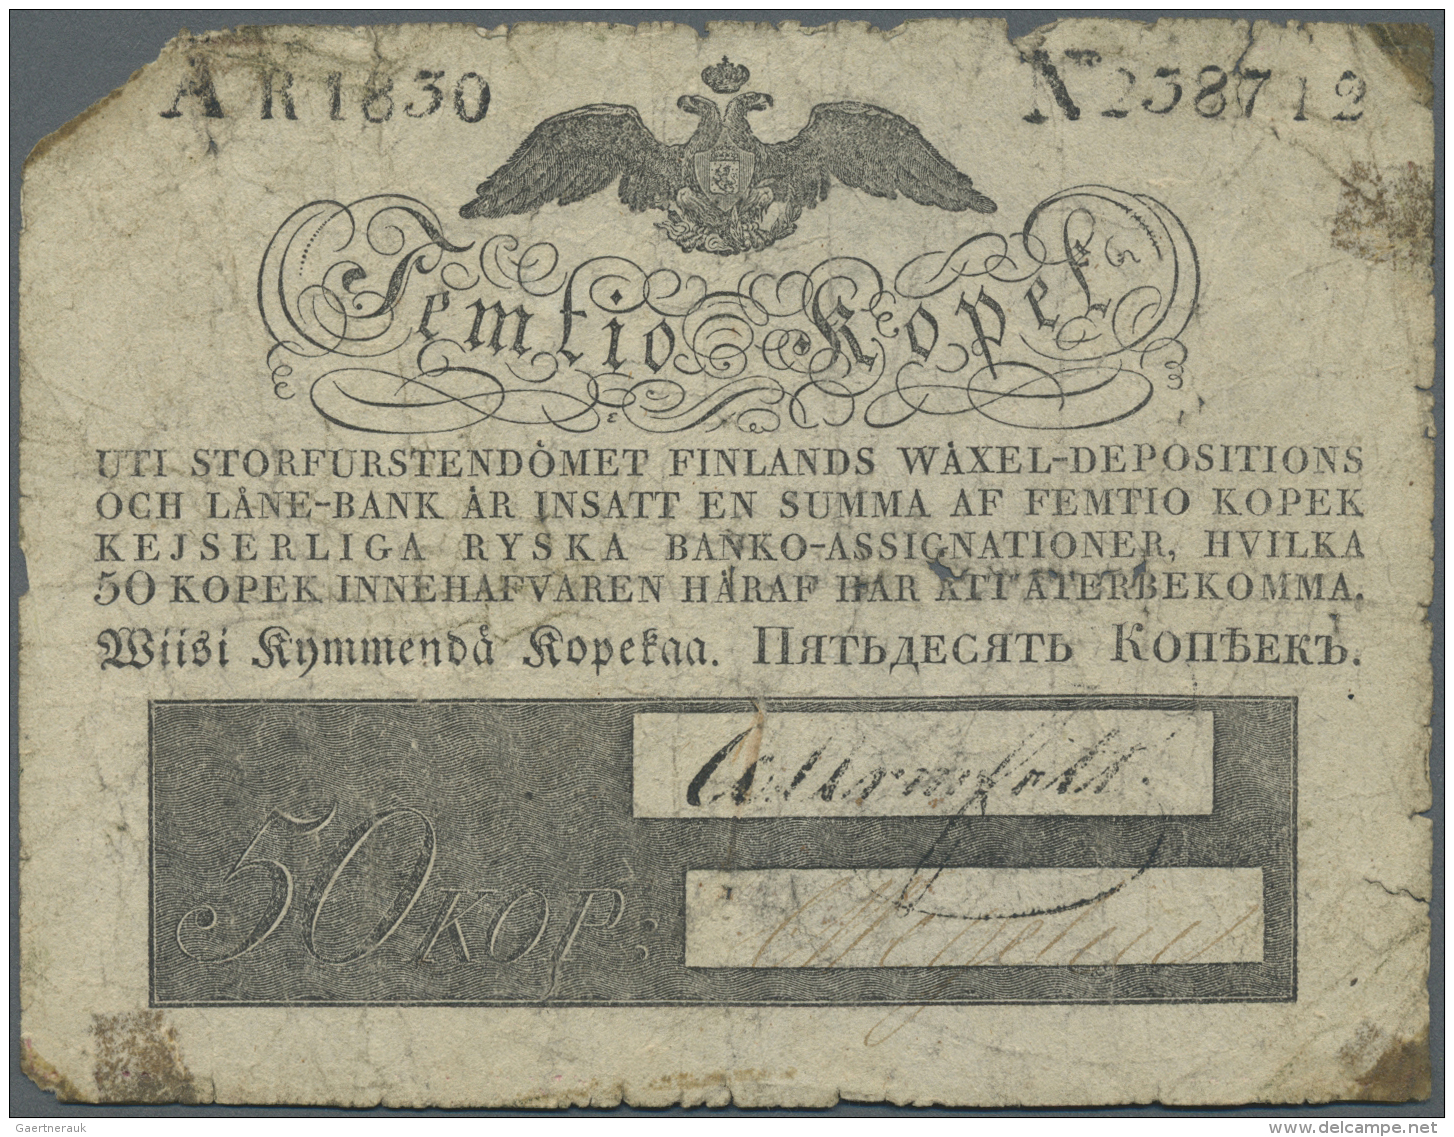 AR 1830 No 238712
Femtio Kopek
UTI STORFURSTENDÖMET FINLANDS WÄXEL-DEPOSITIONS
OCH LÅNE-BANK ÄR INSATT EN SUMMA AF FEMTIO KOPEK
KEJSERLIGA RYSKA BANKO-ASSIGNATIONER, HVILKA
50 KOPEK INNEHAFVAREN HÄRAF HAR ATT ÅTERBEKOMMA.
Wiisi Kymmendä Kopekaa. ПЯТЬДЕСЯТЬ КОПѢЕКЪ.
50 KOP:
Gaertnerauk
delcampe.net